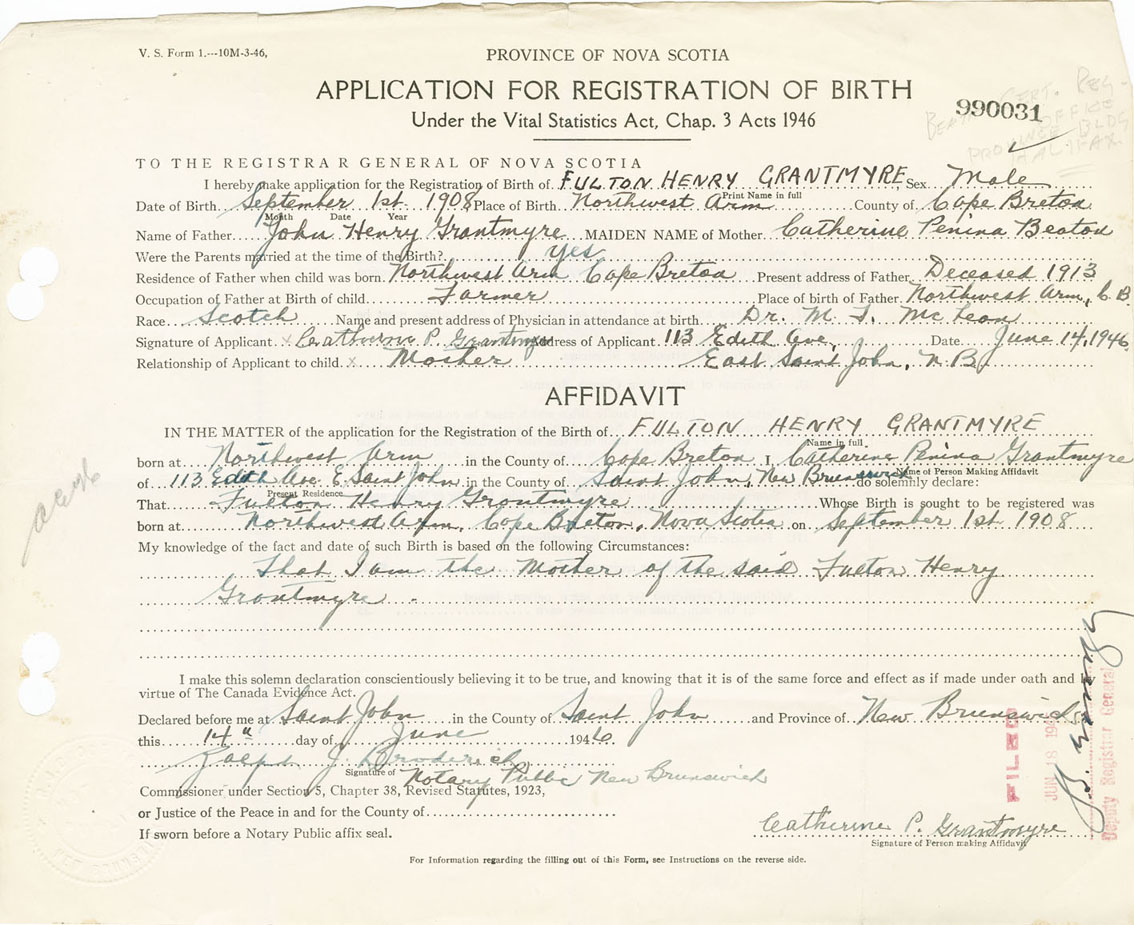 V. S. Form 1.---10M-3-46,
PROVINCE OF NOVA SCOTIA
APPLICATION FOR REGISTRATION OF BIRTH
990031
Under the Vital Statistics Act, Chap. 3 Acts 1946
CERT. REG-
OFFICE
BLDG
HALIFAX
TO THE REGISTRAR GENERAL OF NOVA SCOTIA
I hereby make application for the Registration of Birth of FULTON HENRY GRANTMYRE Sex Male
Print Name in full
Date of Birth September 1st 1908 Place of Birth Northwest Arm County of Cape Breton
Month Date Year
Name of Father John Henry Grantmyre MAIDEN NAME of Mother Catherine Penina Beaton
Were the Parents married at the time of the Birth? yes
Residence of Father when child was born Northwest Arm Cape Breton Present address of Father Deceased 1913
Occupation of Father at Birth of child Farmer Place of birth of Father Northwest Arm, C.B.
Race Scotch Name and present address of Physician in attendance at birth Dr. M. T. McLean
Signature of Applicant x Catherine P. Grantmyre Address of Applicant 113 Edith Ave, Date June 14, 1946
Relationship of Applicant to child x Mother East Saint John, N.B.
AFFIDAVIT
IN THE MATTER of the application for the Registration of the Birth of FULTON HENRY GRANTMYRE
Name in full
born at Northwest Arm in the County of Cape Breton I, Catherine Penina Grantmyre
Name of Person Making Affidavit
of 113 Edith Ave E. Saint John in the County of Saint John, New Brunswick do solemnly declare:
Present Residence
That Fulton Henry Grantmyre Whose Birth is sought to be registered was
born at Northwest Arm, Cape Breton, Nova Scotia on September 1st 1908
My knowledge of the fact and date of such Birth is based on the following Circumstances:
That I am the Mother of the said Fulton Henry
Grantmyre.
I make this solemn declaration conscientiously believing it to be true, and knowing that it is of the same force and effect as if made under oath and by
virtue of The Canada Evidence Act.
Declared before me at Saint John in the County of Saint John and Province of New Brunswick
this 14th day of June 1946
Ralph J. Broderick
Signature of Notary Public New Brunswick
Commissioner under Section 5, Chapter 38, Revised Statutes, 1923,
or Justice of the Peace in and for the County of
If sworn before a Notary Public affix seal.
Catherine P. Grantmyre
Signature of Person making Affidavit
For Information regarding the filling out of this Form, see Instructions on the reverse side.
FILED
JUN 18 1946
Deputy Registrar General